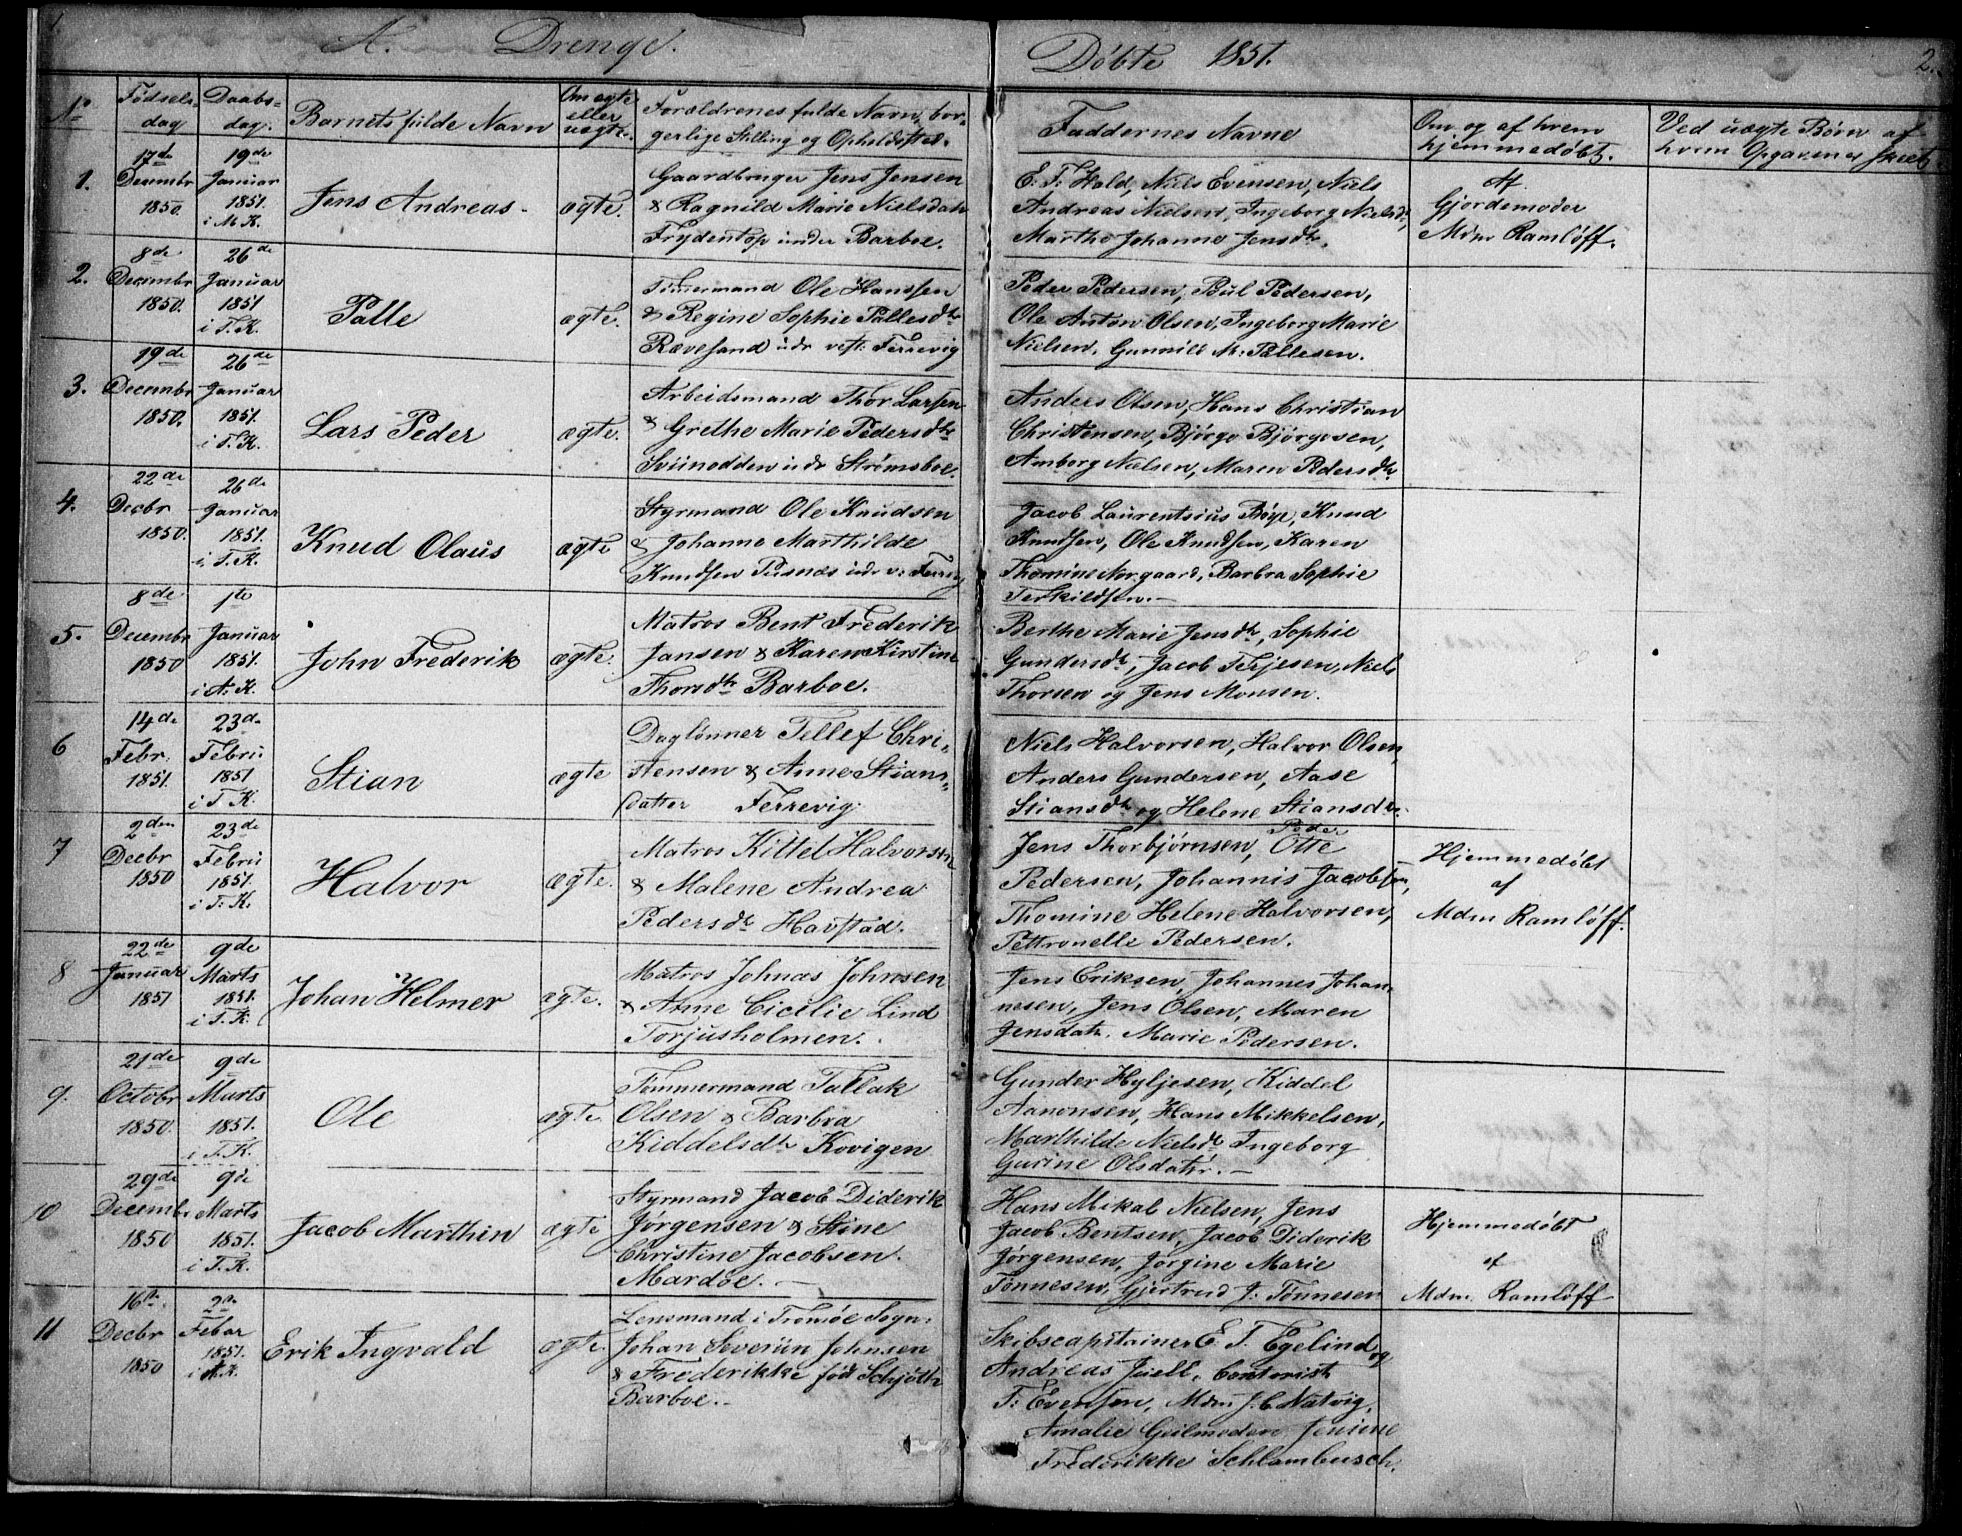 A. Drenge.
Døbte 1851.
2.
No
Fødsels-
dag
Daabs-
dag.
Barnets fulde Navn
Om ægte
eller
uægte.
Forældrenes fulde Navn, bor-
gerlige Stilling og Opholdssted.
Faddernes Navne
Om og af hvem
hjemmedøbt.
Ved uægte Børn af
hvem Opgaven er skeet
1.
17de
Decembr
1850.
19de
Januar
1851.
i A. K.
Jens Andreas.
ægte.
Gaardbruger Jens Jensen
& Ragnild Marie Nielsdatr
Frydentop under Barboe.
E. T. Hald, Niels Evensen, Niels
Andreas Nielsen, Ingeborg Nielsdr,
Marthe Johanne Jensdr.
Af
Gjordemoder
Mdm Ramløff.
2.
8de
Decembr
1850.
26de
Januar
1851
i T. K.
Palle
ægte.
Tømermand Ole Hanssen
& Regine Sophie Pallesdtr
Rævesand udr vest. Færrevig
Peder Pedersen, Poul Pedersen,
Ole Anton Olsen, Ingeborg Marie
Nielsen, Gunnild M. Pallesen.
3.
19de
Decembr
1850.
26de
Januar
1851.
i T. K.
Lars Peder
ægte.
Arbeidsmand Thor Larsen
& Grethe Marie Pedersdtr
Sviinodden udr Strømsboe.
Anders Olsen, Hans Christian
Christensen, Bjørge Bjørgesen,
Amborg Nielsen, Maren Pedersdtr
4.
22de
Decbr
1850.
26de
Januar
1851.
i T. K.
Knud Olaus
ægte
Styrmand Ole Knudsen
& Johanne Marthilde
Knudsen Pusnæs udr v. Færrevig
Jacob Laurentsius Bøye, Knud
Knudsen, Ole Knudsen, Karen
Thomine Norgaard, Barbra Sophie
Terkildsen.
5.
8de
Decembr
1850
1te
Januar
1851.
i A. K.
John Frederik
ægte.
Matros Bent Frederik
Jansen & Karen Kirstine
Thorsdtr Barboe.
Berthe Marie Jensdtr, Sophie
Gundersdtr, Jacob Terjesen, Niels
Thorsen og Jens Monsen.
6
14de
Febr.
1851.
23de
Febru
1851
i T K.
Stian
ægte
Daglønner Tellef Chri-
stensen & Anne Stians-
datter Færrevig.
Niels Halvorsen, Halvor Olsen,
Anders Gundersen, Aase
Stiansdtr og Helene Stiansdtr.
7
2den
Decbr
1850
23de
Febru
1851.
i T. K.
Halvor
ægte.
Matros Kittel Halvorsen
& Malene Andrea
Pedersdtr Havstad.
Jens Thorbjørnsen, Peder Otte
Pedersen, Johannis Jacobsen,
Thomine Helene Halvorsen,
Pettronelle Pedersen.
Hjemmedøbt
af
Mdm Ramløff.
8
22de
Januar
1851
9de
Marts
1851.
i T. K.
Johan Helmer
ægte.
Matros Johnas Johnsen
& Anne Cicilie Lind
Torjusholmen.
Jens Eriksen, Johannes Johan-
nesen, Jens Olsen, Maren
Jensdatr. Marie Pedersen.
9.
21de
Octobr
1850.
9de
Marts
1851.
i T. K.
Ole
ægte.
Tømmermand Tallak
Olsen & Barbra
Kiddelsdtr Kovigen
Gunder Hyljesen, Kiddel
Aanonsen, Hans Mikkelsen,
Marthilde Nielsdtr Ingeborg
Gurine Olsdatr.
10
29de
Decembr
1850
9de
Marts
1851.
i T. K.
Jacob Marthin
ægte
Styrmand Jacob Diderik
Jørgensen & Stine
Christine Jacobsen.
Mardøe.
Hans Mikal Nielsen, Jens
Jacob Bentsen, Jacob Diderik
Jørgensen, Jørgine Marie
Tønnesen, Gjertrud J. Tønnesen
Hjemmedøbt
af
Mdm. Ramløff
11
16de
Decbr
1850
2de
Febar
1851.
i A. K.
Erik Ingvald
ægte.
Lensmand i Tromøe Sogn.
Johan Severiin Johnsen
& Frederikke født Schjøth
Barboe.
Skibscapitainer E. T. Egelind og
Andreas Juell, Contorist
T. Evensen, Mdm J. C. Natvig,
Amalie Jensine
Frederikke Schlambusch.